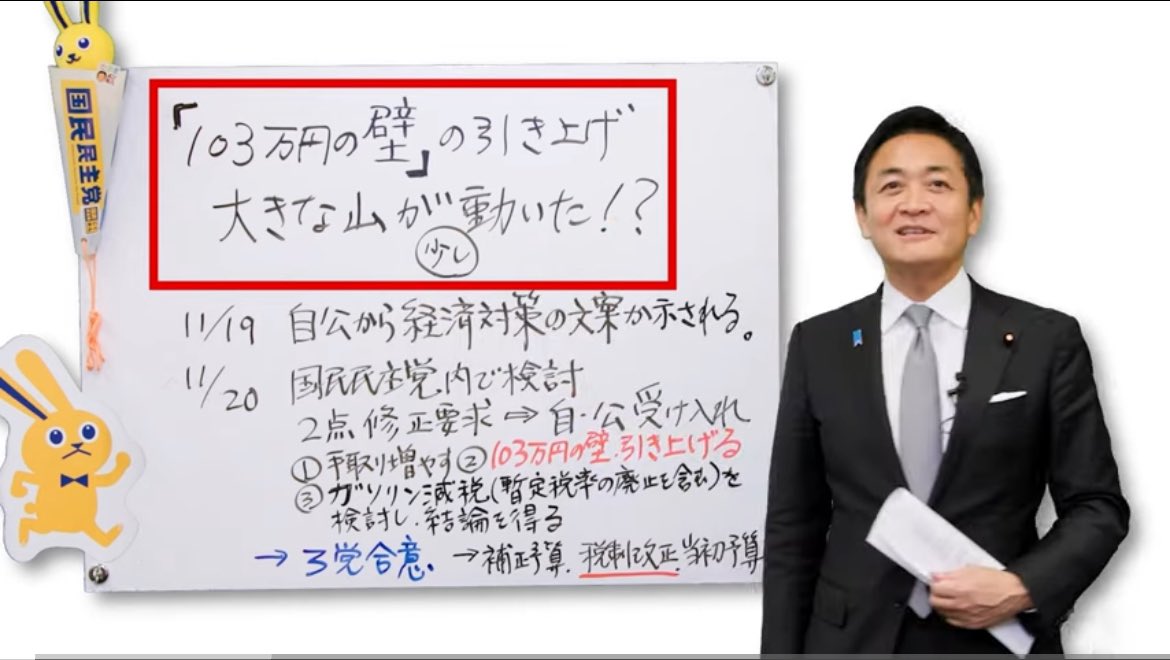 国民民主党
「103万円の壁」の引き上げ
大きな山が動いた!?
少し
11/19 自公から経済対策の文案が示される。
11/20 国民民主党内で検討
2点修正要求⇒自・公受け入れ
①手取り増やす②103万円の壁引き上げる
③ガソリン減税(暫定税率の廃止を含む)を
検討し、結論を得る
→3党合意、→補正予算、税制改正、当初予算